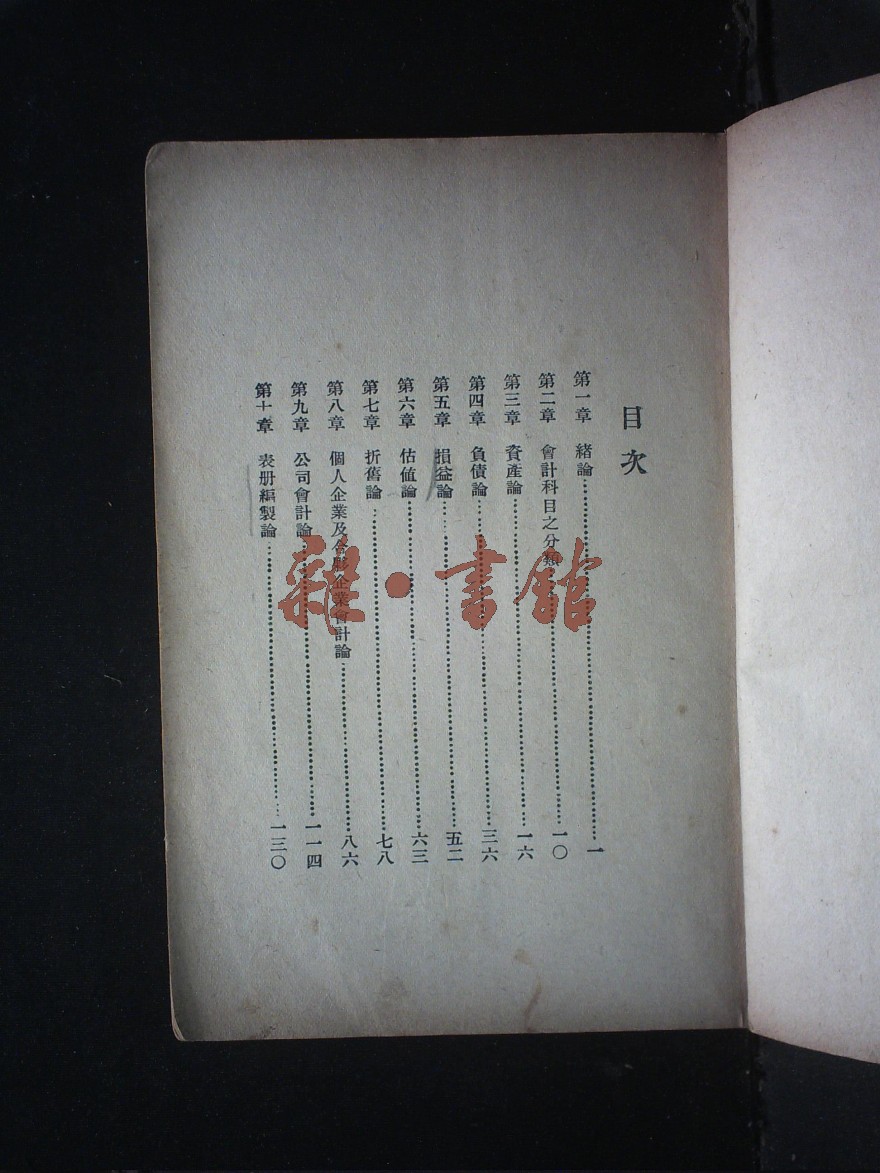 目次
第一章 緒論……一
第二章 會計科目之分類……一〇
第三章 資產論……一六
第四章 負債論……三六
第五章 損益論……五二
第六章 估值論……六三
第七章 折舊論……七八
第八章 個人企業及合夥企業會計論……八六
第九章 公司會計論……一一四
第十章 表册編製論……一三〇
雜·書館